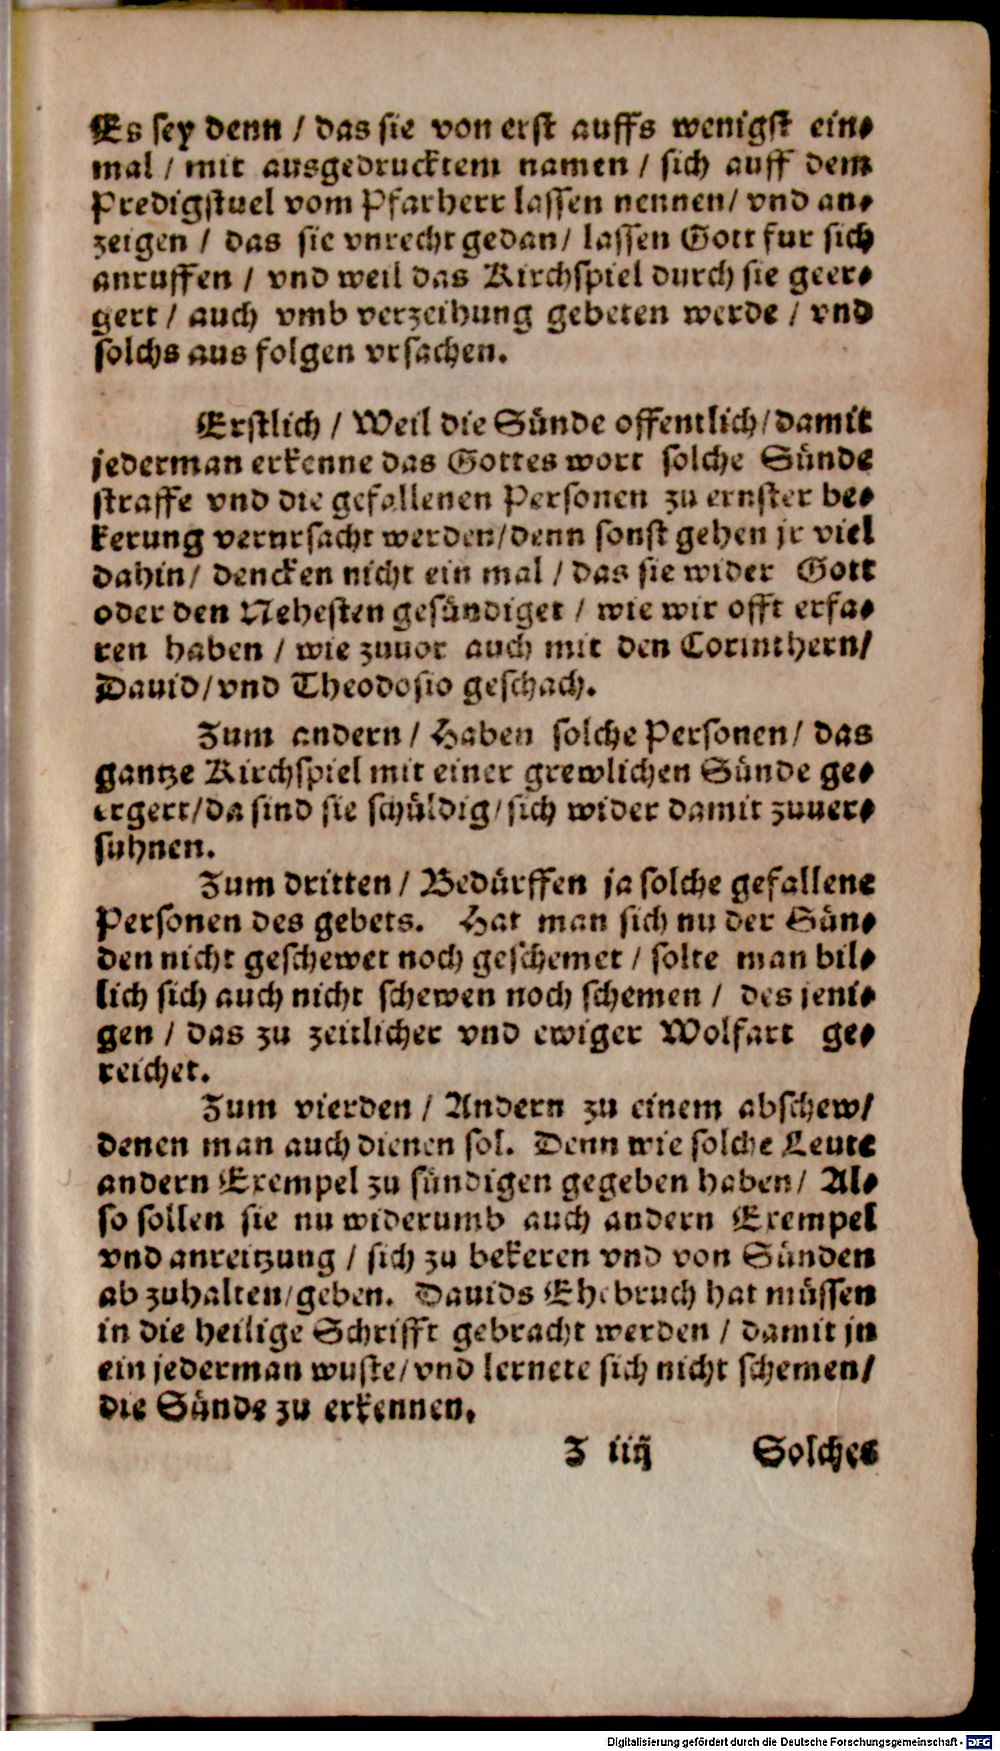 Es sey denn / das sie von erst auffs wenigst ein⸗
mal / mit ausgedrucktem namen / sich auff dem
Predigstuel vom Pfarherr lassen nennen/ vnd an⸗
zeigen / das sie vnrecht gedan/ lassen Gott fur sich
anruffen / vnd weil das Kirchspiel durch sie geer⸗
gert / auch vmb verzeihung gebeten werde / vnd
solchs aus folgen vrsachen.
Erstlich / Weil die Sünde offentlich/damit
jederman erkenne das Gottes wort solche Sünde
straffe vnd die gefallenen Personen zu ernster be⸗
kerung verursacht werden/denn sonst gehen jr viel
dahin/ dencken nicht ein mal / das sie wider Gott
oder den Nehesten gesündiget / wie wir offt erfa⸗
ren haben / wie zuuor auch mit den Corinthern/
Dauid/vnd Theodosio geschach.
Zum andern / Haben solche Personen/ das
gantze Kirchspiel mit einer grewlichen Sünde ge⸗
ergert/da sind sie schüldig/sich wider damit zuuer⸗
suhnen.
Zum dritten / Bedürffen ja solche gefallene
Personen des gebets. Hat man sich nu der Sün⸗
den nicht geschewet noch geschemet / solte man bil⸗
lich sich auch nicht schewen noch schemen / des jeni⸗
gen / das zu zeitlicher vnd ewiger Wolfart ge⸗
reichet.
Zum vierden / Andern zu einem abschew/
denen man auch dienen sol. Denn wie solche Leute
andern Exempel zu sündigen gegeben haben/ Al⸗
so sollen sie nu widerumb auch andern Exempel
vnd anreitzung / sich zu bekeren vnd von Sünden
ab zuhalten/geben. Dauids Ehebruch hat müssen
in die heilige Schrifft gebracht werden / damit jn
ein jederman wuste/vnd lernete sich nicht schemen/
die Sünde zu erkennen.
Z iiij Solches
Digitalisierung gefördert durch die Deutsche Forschungsgemeinschaft - DFG